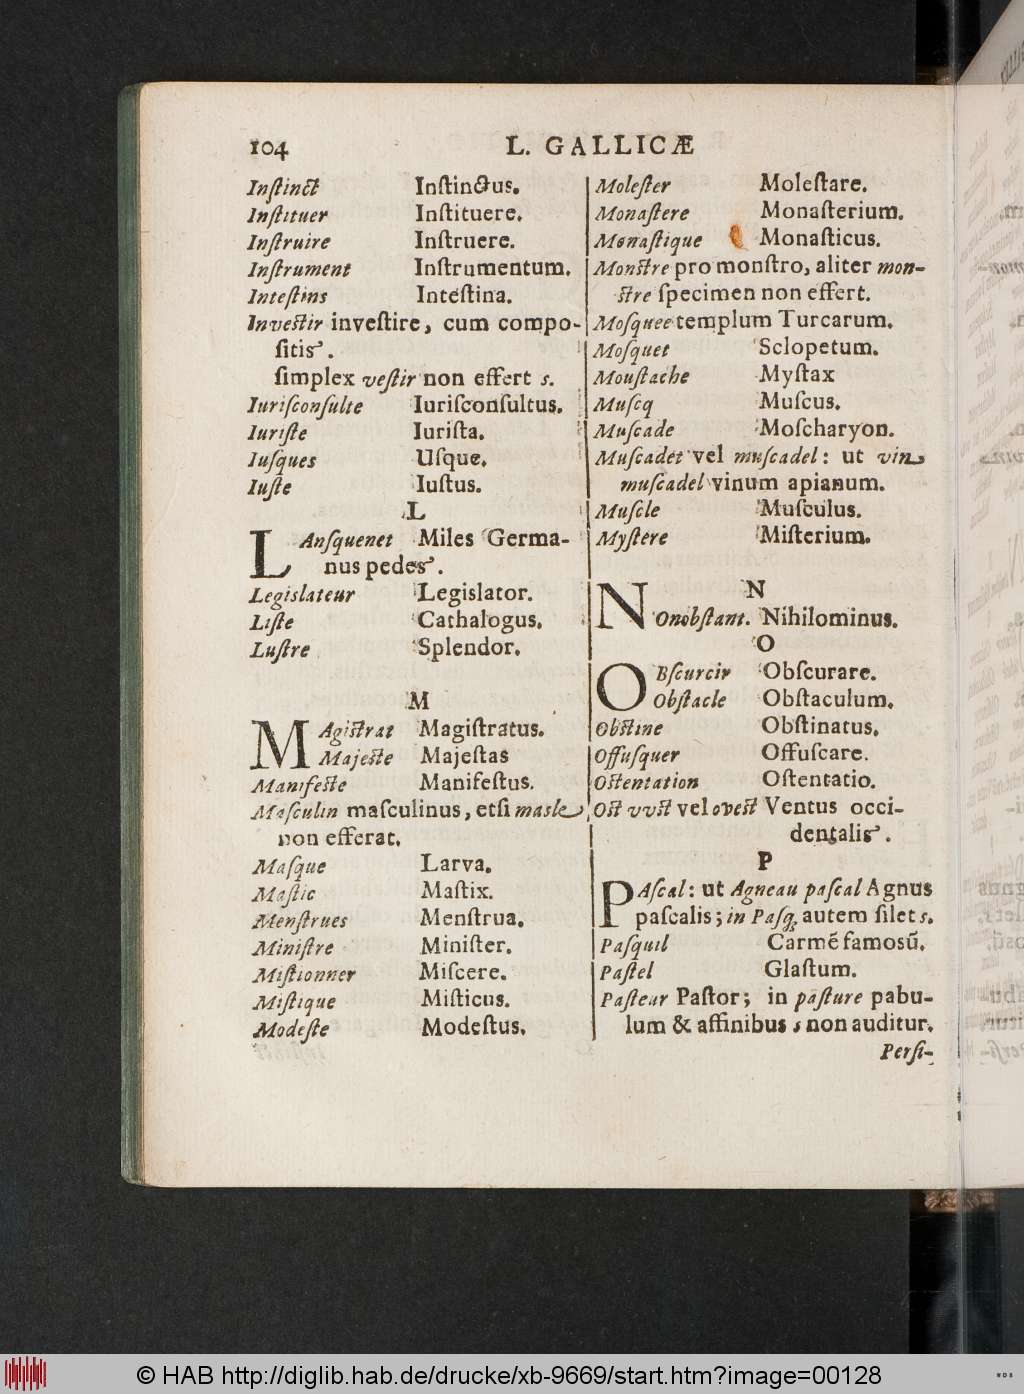 104 L. GALLICÆ
Inſtinct Inſtinctus.
Inſtituer Inſtituere.
Inſtruire Inſtruere.
Inſtrument Inſtrumentum.
Inteſtins Inteſtina.
Inveſtir inveſtire, cum compo-
ſitis.
ſimplex veſtir non effert s.
Iuriſconſulte Iuriſconſultus.
Iuriſte Iuriſta.
Iuſques Uſque.
Iuſte Iuſtus.
L
LAnſquenet Miles Germa-
nus pedes.
Legislateur Legislator.
Liſte Cathalogus.
Luſtre Splendor.
M
MAgiſtrat Magiſtratus.
Majeſte Majeſtas
Manifeſte Manifeſtus.
Maſculin maſculinus, etſi masle
non efferat.
Maſque Larva.
Maſtic Maſtix.
Menſtrues Menſtrua.
Miniſtre Miniſter.
Miſtionner Miſcere.
Miſtique Miſticus.
Modeſte Modeſtus.
Moleſter Moleſtare.
Monaſtere Monaſterium.
Monaſtique Monaſticus.
Monſtre pro monſtro, aliter mon-
ſtre ſpecimen non effert.
Moſquee templum Turcarum.
Moſquet Sclopetum.
Mouſtache Myſtax
Muſcq Muſcus.
Muſcade Moſcharyon.
Muſcadet vel muſcadel: ut vin
muſcadel vinum apianum.
Muſcle Muſculus.
Myſtere Miſterium.
N
NOnobſtant. Nihilominus.
O
OBſcurcir Obſcurare.
Obſtacle Obſtaculum.
Obſtine Obſtinatus.
Offuſquer Offuſcare.
Oſtentation Oſtentatio.
Oſt vvſt vel oveſt Ventus occi-
dentalis.
P
PAſcal: ut Agneau paſcal Agnus
paſcalis; in Paſq autem ſilet s.
Paſquil Carmē famosū.
Paſtel Glaſtum.
Paſteur Paſtor; in paſture pabu-
lum & affinibus s non auditur.
Perſi-
© HAB http://diglib.hab.de/drucke/xb-9669/start.htm?image=00128